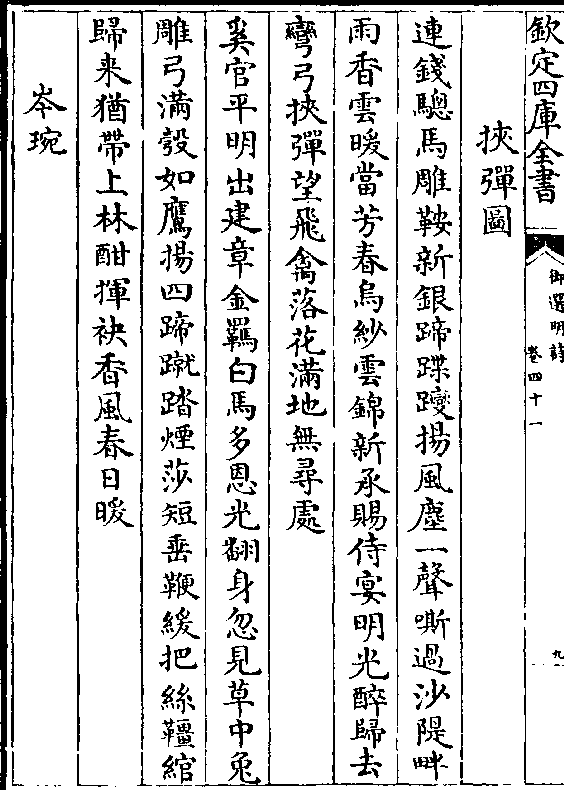 欽定四庫全書
御選明詩
卷四十一
九
挾彈圖
連錢驄馬雕鞍新銀蹄蹀躞揚風塵一聲嘶過沙隄畔
雨香雲暖當芳春烏紗雲錦新承賜侍宴明光醉歸去
彎弓挾彈望飛禽落花滿地無尋處
奚官平明出建章金羈白馬多恩光翻身忽見草中兔
雕弓滿彀如鷹揚四蹄蹴踏煙莎短垂鞭緩把絲韁綰
歸来猶帶上林酣揮袂香風春日暖
岑琬